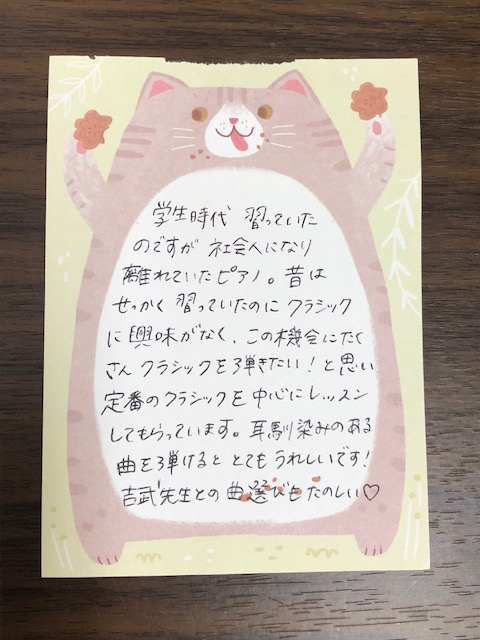 学生時代 習っていた
のですが 社会人になり
離れていたピアノ。昔は
せっかく 習っていたのに クラシック
に 興味がなく、この機会にたく
さん クラシックを弾きたい！と思い
定番のクラシックを中心にレッスン
してもらっています。耳馴染みのある
曲を弾けると とてもうれしいです！
吉武先生との曲選びも たのしい♡